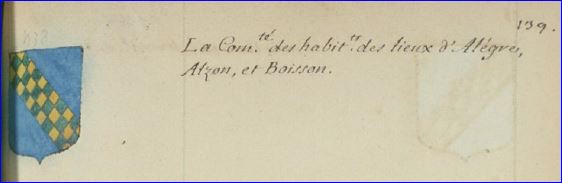 139.
La Com.té des habit.ts des lieux d'Alégre,
Alzon, et Boisson.